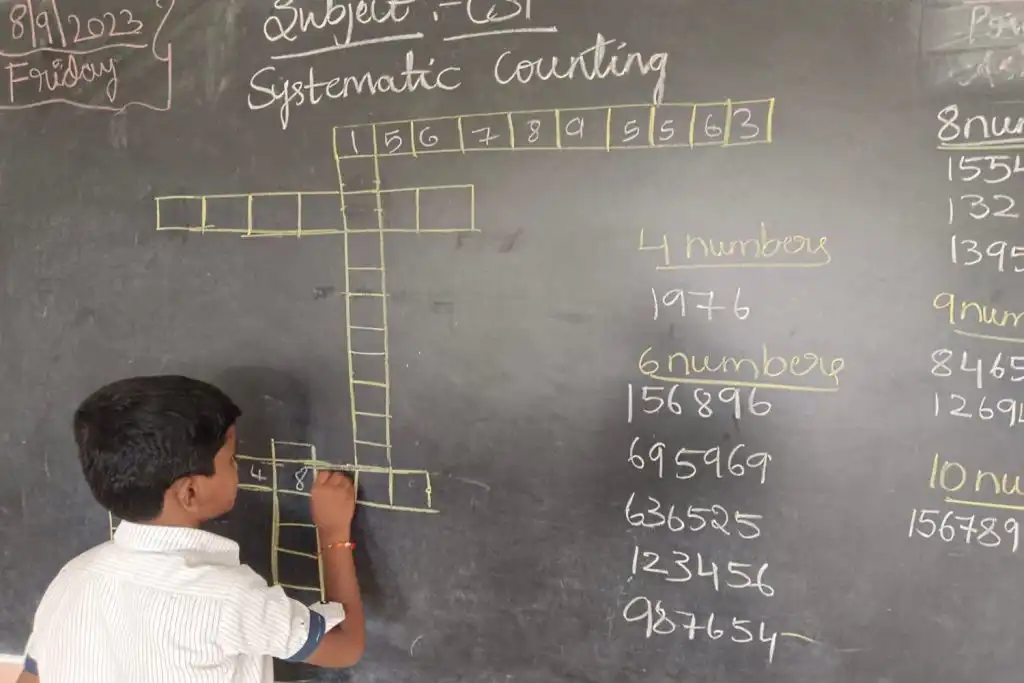 8/9/2023
Friday
Subject :- CSP
Systematic Counting
1 5 6 7 8 9 5 5 6 3
4 8
4 numbers
1976
6 numbers
156896
695969
636525
123456
987654
1554
132
1395
8465
1269
156789